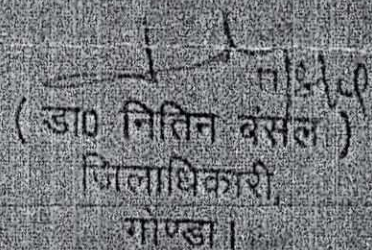 ( डा0 नितिन बंसल )
जिलाधिकारी,
गोण्डा।